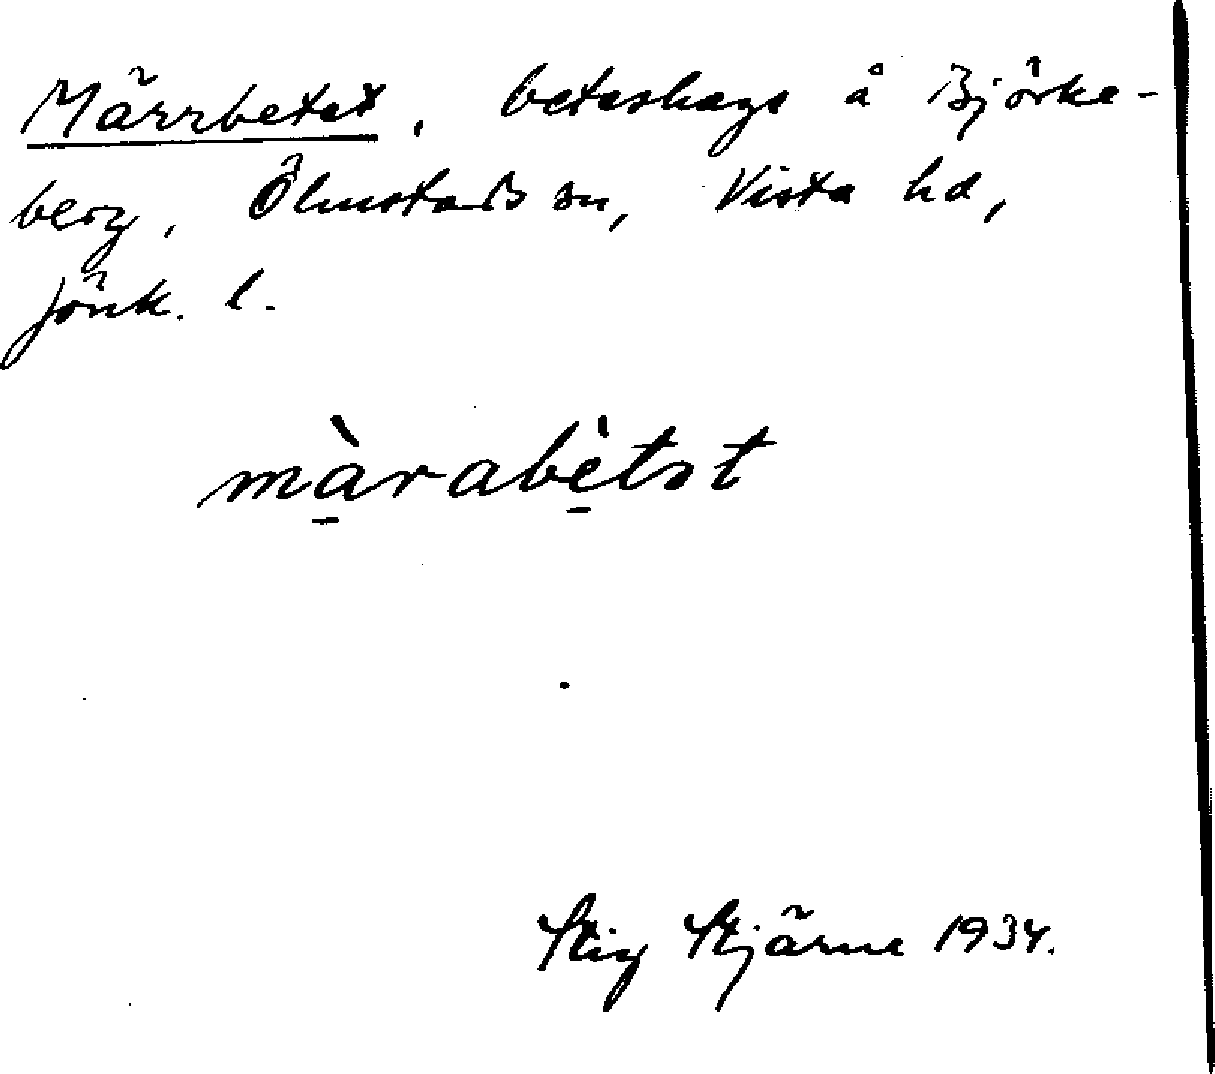 Märrbetet, beteshage å Björke-
berg, Ölmstads sn, Vista hd,
Jönk. l.
màrabètət
Stig Stjärne 1934.